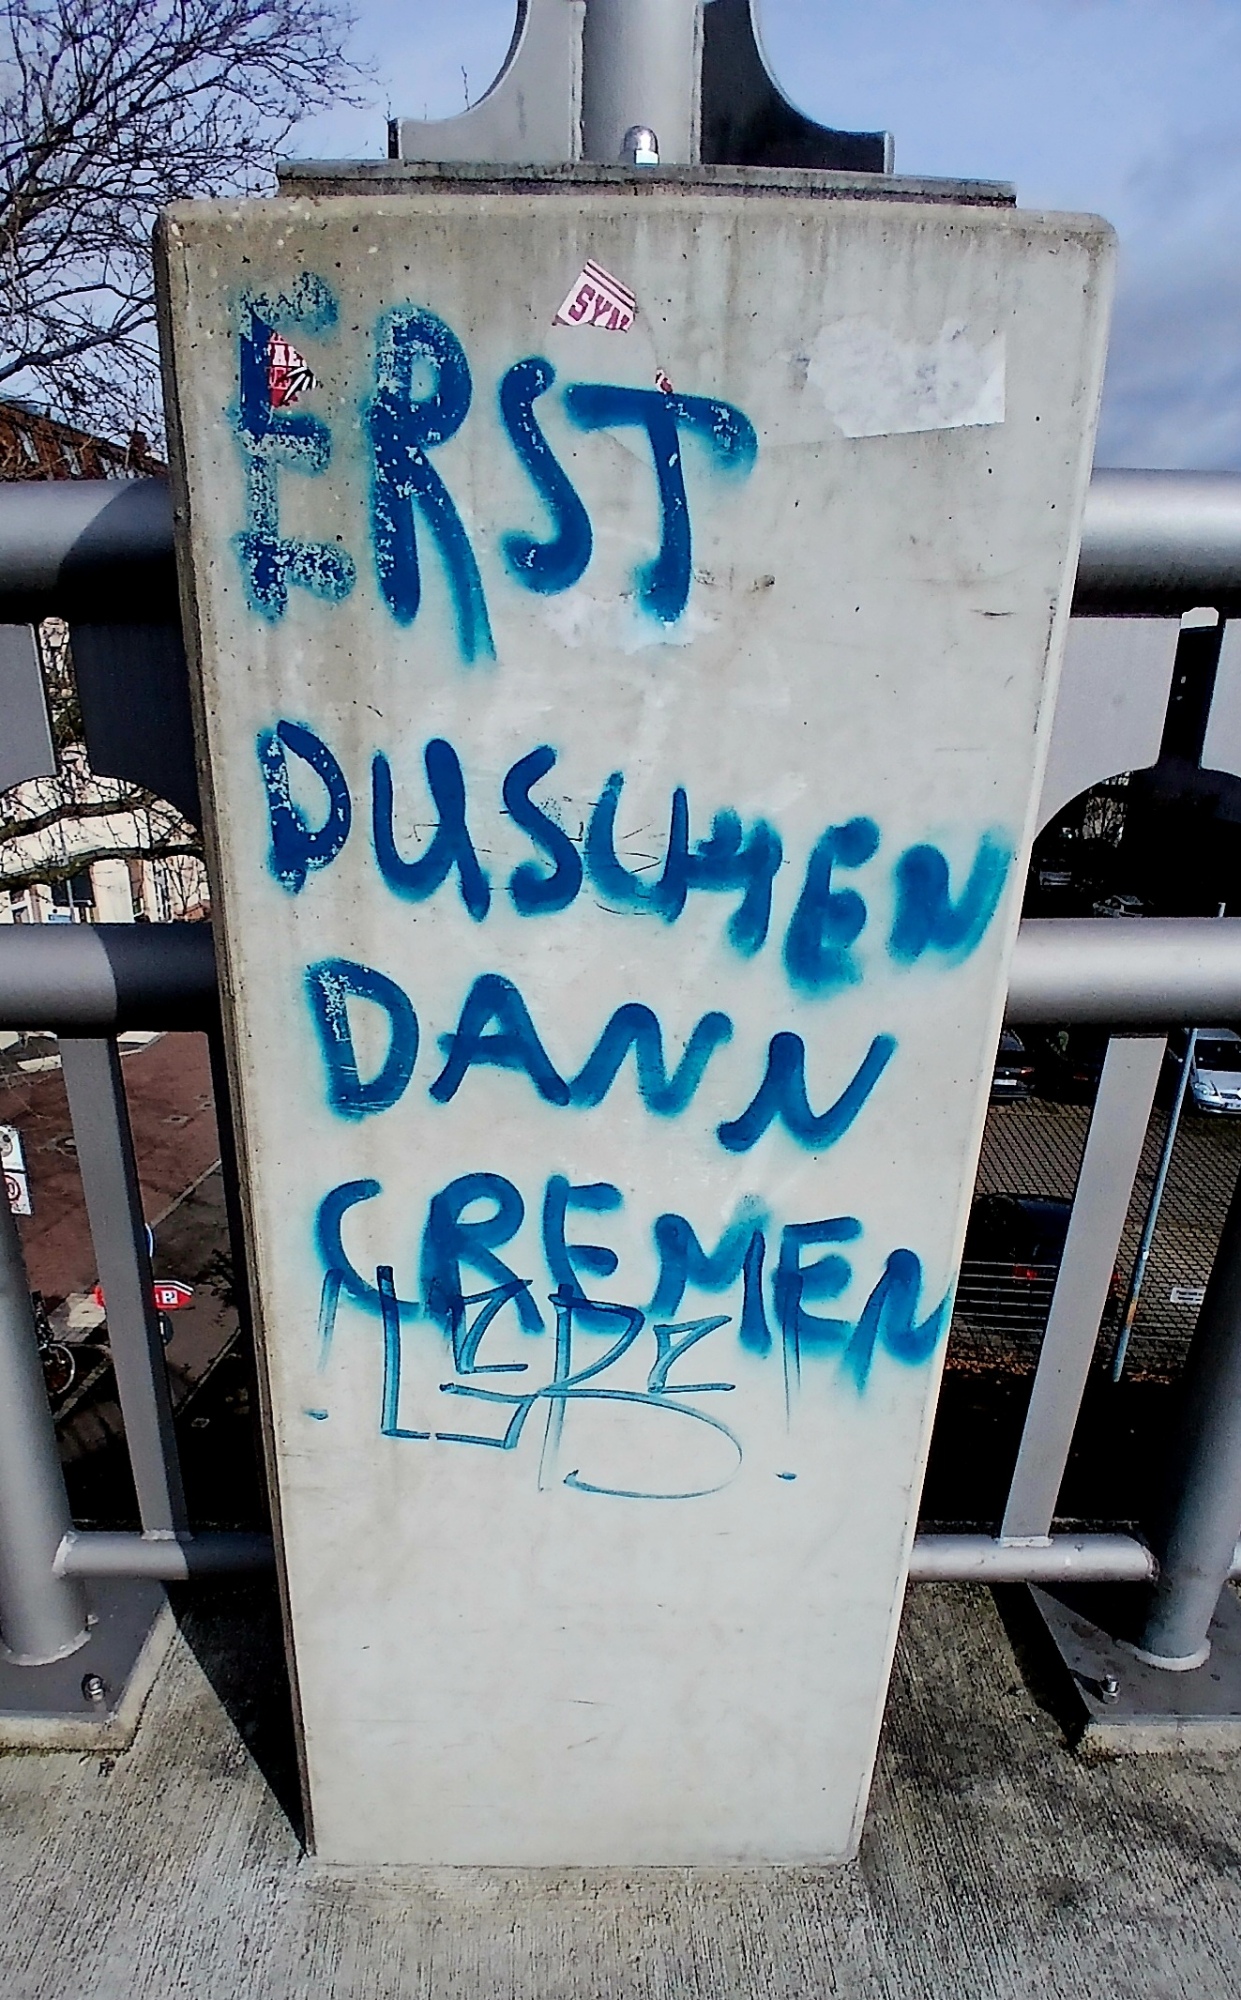 SYN
ERST
DUSCHEN
DANN
CREMEN